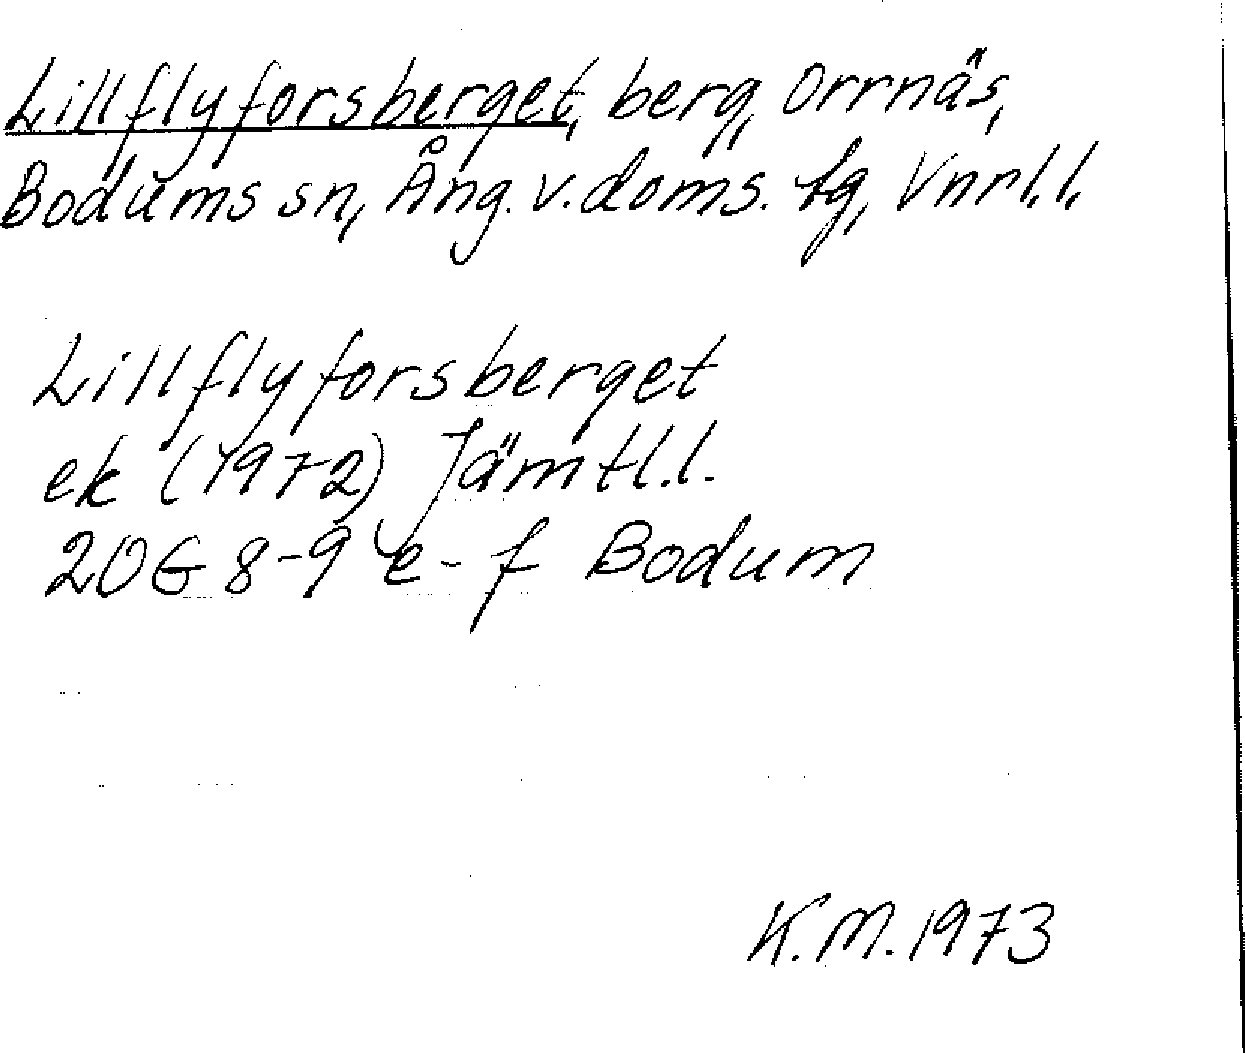 Lillflyforsberget, berg, Orrnäs,
Bodums sn, Ång. v. doms. tg, Vnrl.l.
Lillflyforsberget
ek (1972) Jämtl.l.
20G 8-9 e-f Bodum
K.M. 1973